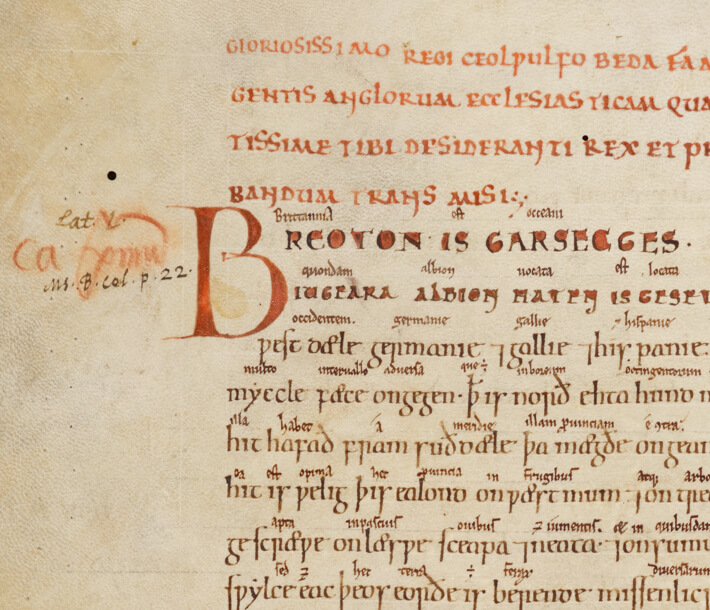 GLORIOSISSIMO REGI CEOLǷULFO BEDA FAM
GENTIS ANGLORUM ECCLESIASTICAM QUA
TISSIME TIBI DESIDERANTI REX ET PR
BANDUM TRANSMISI:,
Lat. V.
Ca
MS. B. Col. p. 22.
Brittannia est oceani
BREOTON IS GARSECGES.
quondam albion uocata est locata
IUGEARA ALBION HATEN IS GESET
occidentem. germanie gallie hispanie
ǷESTDÆLE germanie ⁊ gallie ⁊ hispanie
multo interuallo aduersa que inboream octingentorum
myccle fæce ongegen. þ is norð ehta hund m
illa habet a meridie illam prouinciam
hit hafað fram suðdæle þa mægðe ongean
est opima hec prouincia in frugibus atque arbo
hit is ƿelig þis ealond on ƿæstmum ⁊ on treo
apta inpascuis ouibus ⁊ iumentis. & in quibusdam
gescræpe on læsƿe sceapa ⁊ neata. ⁊ on sumu
sed ⁊ hec terra ferax diuersarum
sƿylce eac þeos eorðe is berende missenlicr